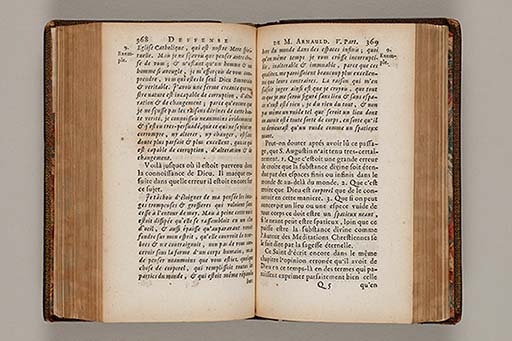 368 DEFFENSE
2. Exem-
ple.
Eglise Catholique, qui est nostre Mere spiri-
tuelle. Mais je ne sçavois que penser autre cho-
se de vous; & n'estant qu'un homme & un
homme si aveugle, je m'efforçois de vous com-
prendre, vous qui estes le seul Dieu souverain
& veritable. J'avois une ferme creance que vo-
stre nature est incapable de corruption, d'alte-
ration & de changement; parce qu'encore que
je ne sçusse pas les raisons divines de cette hau-
te verité, je connoissois neanmoins évidemment
& j'estois tres-persuadé, que ce qui ne se peut ni
corrompre, ny alterer, ny changer, est sans
doute plus parfait & plus excellent, que ce qui
est capable de corruption, d'alteration & de
changement.
Voilà jusques où il estoit parvenu dans
la connoissance de Dieu. Il marque en-
suite dans quelle erreur il estoit encore sur
ce sujet.
Je tâchois d'éloigner de ma pensée les ima-
ges trompeuses & grossieres qui voloient sans
cesse à l'entour de moy. Mais à peine cette nuée
estoit dissipée qu'elle se rassembloit en un clin
d'œil, & aussi épaisse qu'auparavant venoit
fondre sur mon esprit, qu'elle couvroit de tene-
bres & me contraignoit, non pas de vous con-
cevoir sous la forme d'un corps humain, mais
de penser neanmoins que vous estiez quelque
chose de corporel, qui remplissoit toutes les
parties du monde, & qui estoit même répandu
hors
DE M. ARNAULD. V. Part. 369
2. Exem-
ple.
hors du monde dans des espaces infinis; quoi
qu'en même temps je vous crusse incorrupti-
ble, inalterable & immuable, parce que ces
qualitez me paroissoient beaucoup plus excellen-
tes que leurs contraires. La raison qui m'en
faisoit juger ainsi est que je croyois, que tout
ce que je ne me figurois pas sans lieu & sans espa-
ce n'est rien, je dis rien du tout, & non
pas même un vuide tel que seroit un lieu dont
on auroit osté toute sorte de corps, en sorte qu'il
ne demeurast qu'un vuide comme un spatieux
neant.
Peut-on douter aprés avoir lû ce passa-
ge, que S. Augustin n'ait tenu tres-certai-
nement. 1. Que c'estoit une grande erreur
de croire que la substance divine soit éten-
duë par des espaces finis ou infinis dans le
monde & au-delà du monde. 2. Que c'est
croire que Dieu est corporel que de le con-
cevoir en cette maniere. 3. Que si on peut
concevoir un lieu ou une espace vuide de
tout corps ce doit estre un spatieux neant,
le neant peut estre spatieux, loin que ce
puisse estre la substance divine comme
l'Auteur des Meditations Chrestiennes se
le fait dire par la sagesse éternelle.
Ce Saint décrit encore dans le même
chapitre l'opinion erronée qu'il avoit de
Dieu en ce temps-là en des termes qui pa-
roissent exprimer parfaitement bien celle
Q 5 qu'en